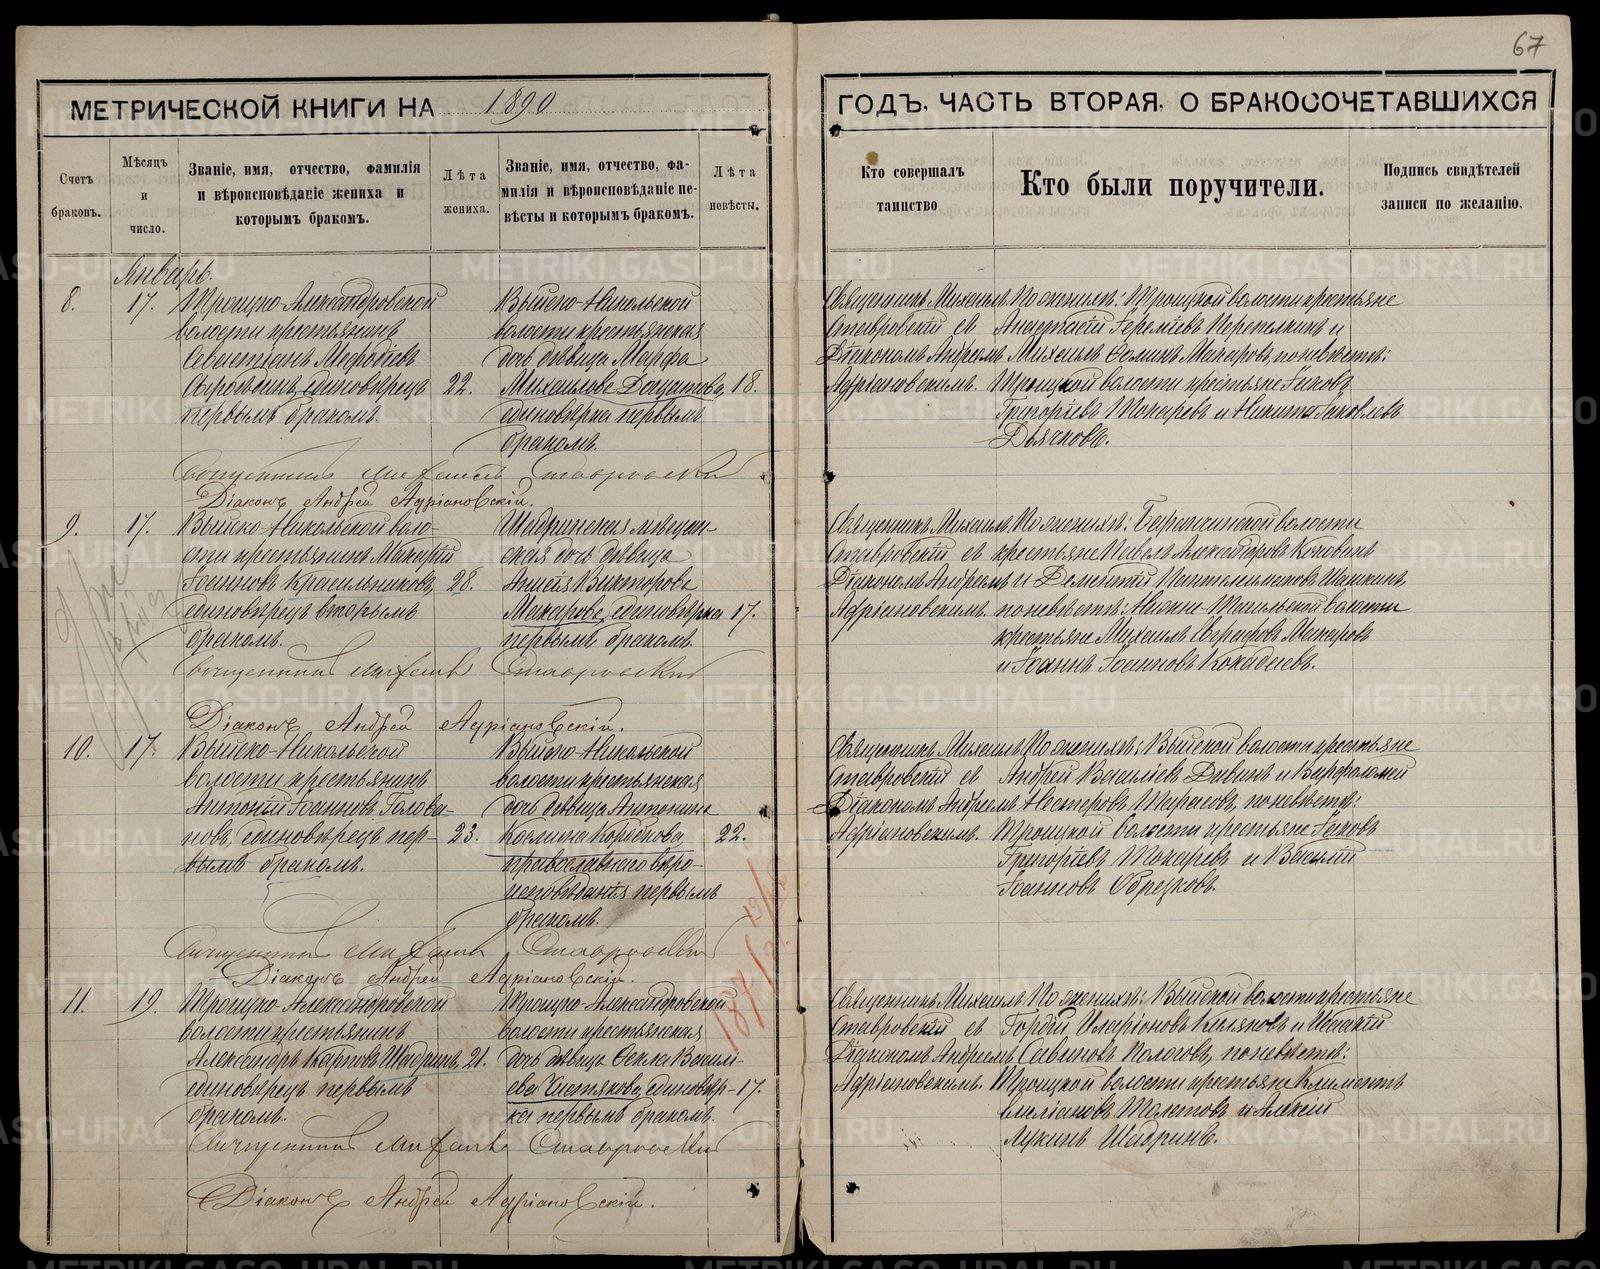 67
МЕТРИЧЕСКОЙ КНИГИ НА 1890 ГОДЪ. ЧАСТЬ ВТОРАЯ. О БРАКОСОЧЕТАВШИХСЯ
Счетъ браковъ.
Мѣсяцъ и число.
Званіе, имя, отчество, фамилія
и вѣроисповѣданіе жениха и
которымъ бракомъ.
Лѣта жениха.
Званіе, имя, отчество, фа-
милія и вѣроисповѣданіе не-
вѣсты и которымъ бракомъ.
Лѣта невѣсты.
Кто совершалъ
таинство
Кто были поручители.
Подпись свидѣтелей
записи по желанію.
Январь.
8.
17.
Троицко-Александровской
волости крестьянинъ
Севастіанъ Меѳодіевъ
единовѣрецъ
первымъ бракомъ.
22.
Выйско-Никольской
волости крестьянская
дочь дѣвица Марѳа
Михаилова
единовѣрка первымъ
бракомъ.
18.
Священникъ Михаилъ
Ставровскій съ
Діакономъ Андреемъ
Адріановскимъ.
По женихѣ: Троицкой волости крестьяне
Анастасій Іереміевъ Перетыкинъ и
Михаилъ Ѳоминъ Макаровъ, по невѣстѣ:
Троицкой волости крестьяне Іаковъ
Григоріевъ Токаревъ и Никита Яковлевъ
Дьячковъ.
Священникъ Михаилъ Ставровскій
Діаконъ Андрей Адріановскій.
9.
17.
Выйско-Никольской воло-
сти крестьянинъ Макарій
Іоанновъ Красильниковъ,
единовѣрецъ вторымъ
бракомъ.
28.
Шадринская мѣщан-
ская дочь дѣвица
Викторова
Макарова, единовѣрка
первымъ бракомъ.
17.
Священникъ Михаилъ
Ставровскій съ
Діакономъ Андреемъ
Адріановскимъ.
По женихѣ: волости
крестьяне Павелъ Александровъ
и Дементій Пантелеимоновъ
по невѣстѣ: Нижне-Тагильской волости
крестьяне Михаилъ Макаровъ
и Іоаннъ Іоанновъ
Священникъ Михаилъ Ставровскій
Діаконъ Андрей Адріановскій.
10.
17.
Выйско-Никольской
волости крестьянинъ
Антоній Іоанновъ Голова-
новъ, единовѣрецъ пер-
вымъ бракомъ.
23.
Выйско-Никольской
волости крестьянская
дочь дѣвица Антонина
Космина Коробкова,
православнаго вѣро-
исповѣданія первымъ
бракомъ.
22.
Священникъ Михаилъ
Ставровскій съ
Діакономъ Андреемъ
Адріановскимъ.
По женихѣ: Выйской волости крестьяне
Андрей Василіевъ и Варѳоломей
Нестеровъ Тарасовъ, по невѣстѣ:
Троицкой волости крестьяне Іаковъ
Григоріевъ Токаревъ и Василій
Іоанновъ Обрезковъ.
Священникъ Михаилъ Ставровскій
Діаконъ Андрей Адріановскій.
11.
19.
Троицко-Александровской
волости крестьянинъ
Александръ Карповъ Шадринъ,
единовѣрецъ первымъ
бракомъ.
21.
Троицко-Александровской
волости крестьянская
дочь дѣвица Ѳекла Васили-
ева Чистякова, единовѣр-
ка первымъ бракомъ.
17.
Священникъ Михаилъ
Ставровскій съ
Діакономъ Андреемъ
Адріановскимъ.
По женихѣ: Выйской волости крестьяне
Гордій Иларіоновъ и Исаакій
Савиновъ Пологовъ, по невѣстѣ:
Троицкой волости крестьяне Климентъ
и Алексій
Лукинъ Шадринъ.
Священникъ Михаилъ Ставровскій
Діаконъ Андрей Адріановскій.
METRIKI.GASO-URAL.RU